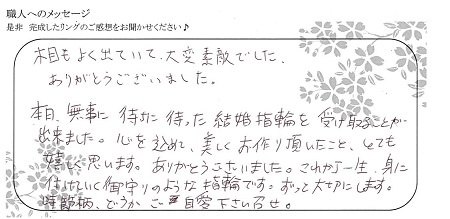 職人へのメッセージ
是非 完成したリングのご感想をお聞かせください♪
木目もよく出ていて、大変素敵でした。
ありがとうございました。
本日、無事に待ちに待った結婚指輪を受け取ることが
出来ました。心を込めて、美しくお作り頂いたこと、とても
嬉しく思います。ありがとうございました。これから一生、身に
付けていく御守りのような指輪です。ずっと大切にします。
時節柄、どうかご自愛下さいませ。